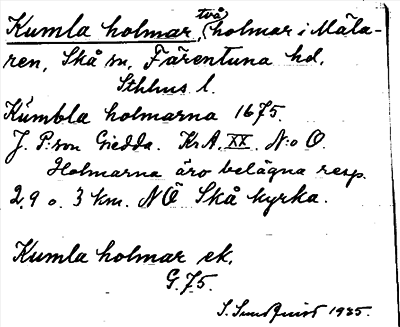 Kumla holmar, två holmar i Mäla-
ren, Skå sn, Färentuna hd,
Sthlms l.
Kŭmbla holmarna 1675.
J. P:son Giedda. Kr.A. XX. N:o O.
Holmarna äro belägna resp.
2,9 o. 3 km. NÖ Skå kyrka.
Kumla holmar ek.
G. 75.
S. Sundquist 1935.